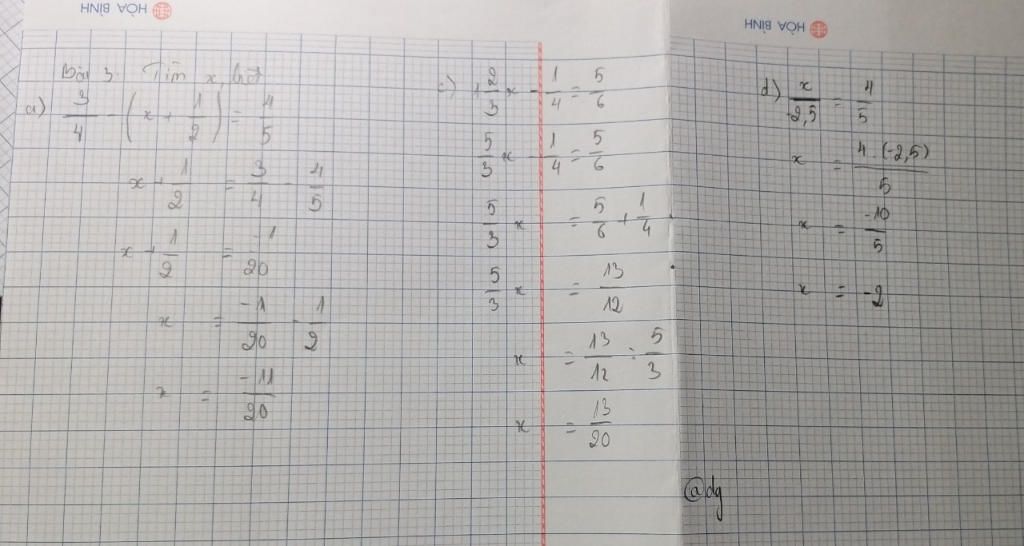 HÒA BÌNH
HÒA BÌNH
Bài 3. Tìm x, biết
a) 3/4 - (x + 1/2) = 4/5
x + 1/2 = 3/4 - 4/5
x + 1/2 = -1/20
x = -1/20 - 1/2
x = -11/20
c) 2/3 x - 1/4 = 5/6
5/3 x - 1/4 = 5/6
5/3 x = 5/6 + 1/4
5/3 x = 13/12
x = 13/12 : 5/3
x = 13/20
d) x/-2,5 = 4/5
x = 4.(-2,5)/5
x = -10/5
x = -2
@dg